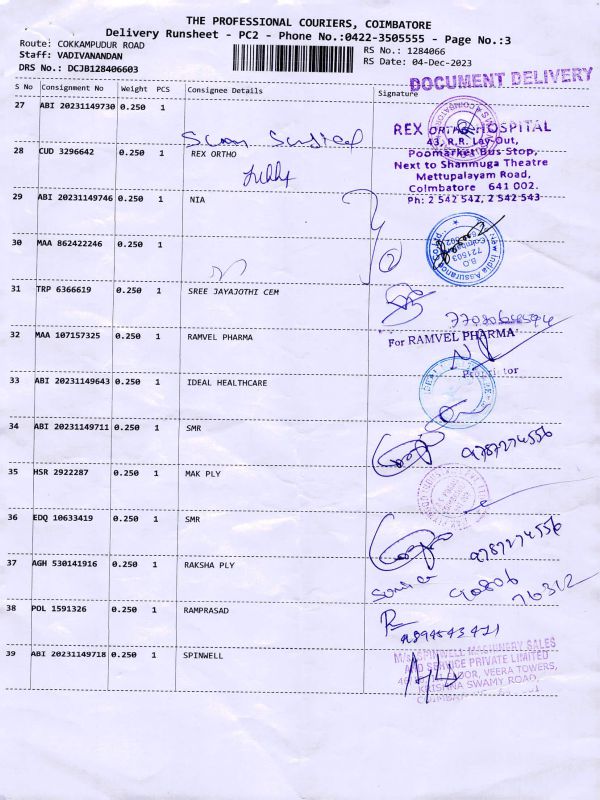 THE PROFESSIONAL COURIERS, COIMBATORE
Delivery Runsheet - PC2 - Phone No.:0422-3505555 - Page No.:3
Route: COKKAMPUDUR ROAD
Staff: VADIVANANDAN
DRS No.: DCJB128406603
RS No.: 1284066
RS Date: 04-Dec-2023
DOCUMENT DELIVERY
S No Consignment No Weight PCS Consignee Details Signature
27 ABI 20231149730 0.250 1
REX ORTHO HOSPITAL
43, R.R. Lay-Out,
Poomarket Bus-Stop,
Next to Shanmuga Theatre
Mettupalayam Road,
Coimbatore 641 002.
Ph: 2 542 542, 2 542 543
28 CUD 3296642 0.250 1 REX ORTHO
29 ABI 20231149746 0.250 1 NIA
New India Assurance
B.O
721503
30 MAA 862422246 0.250 1
31 TRP 6366619 0.250 1 SREE JAYAJOTHI CEM
32 MAA 107157325 0.250 1 RAMVEL PHARMA
For RAMVEL PHARMA
33 ABI 20231149643 0.250 1 IDEAL HEALTHCARE
34 ABI 20231149711 0.250 1 SMR
9787274556
35 HSR 2922287 0.250 1 MAK PLY
36 EDQ 10633419 0.250 1 SMR
9787274556
37 AGH 530141916 0.250 1 RAKSHA PLY
90806
76312
38 POL 1591326 0.250 1 RAMPRASAD
39 ABI 20231149718 0.250 1 SPINWELL
M/s. SPINWELL MACHINERY SALES
AND SERVICE PRIVATE LIMITED
VEERA TOWERS,
KRISHNA SWAMY ROAD,